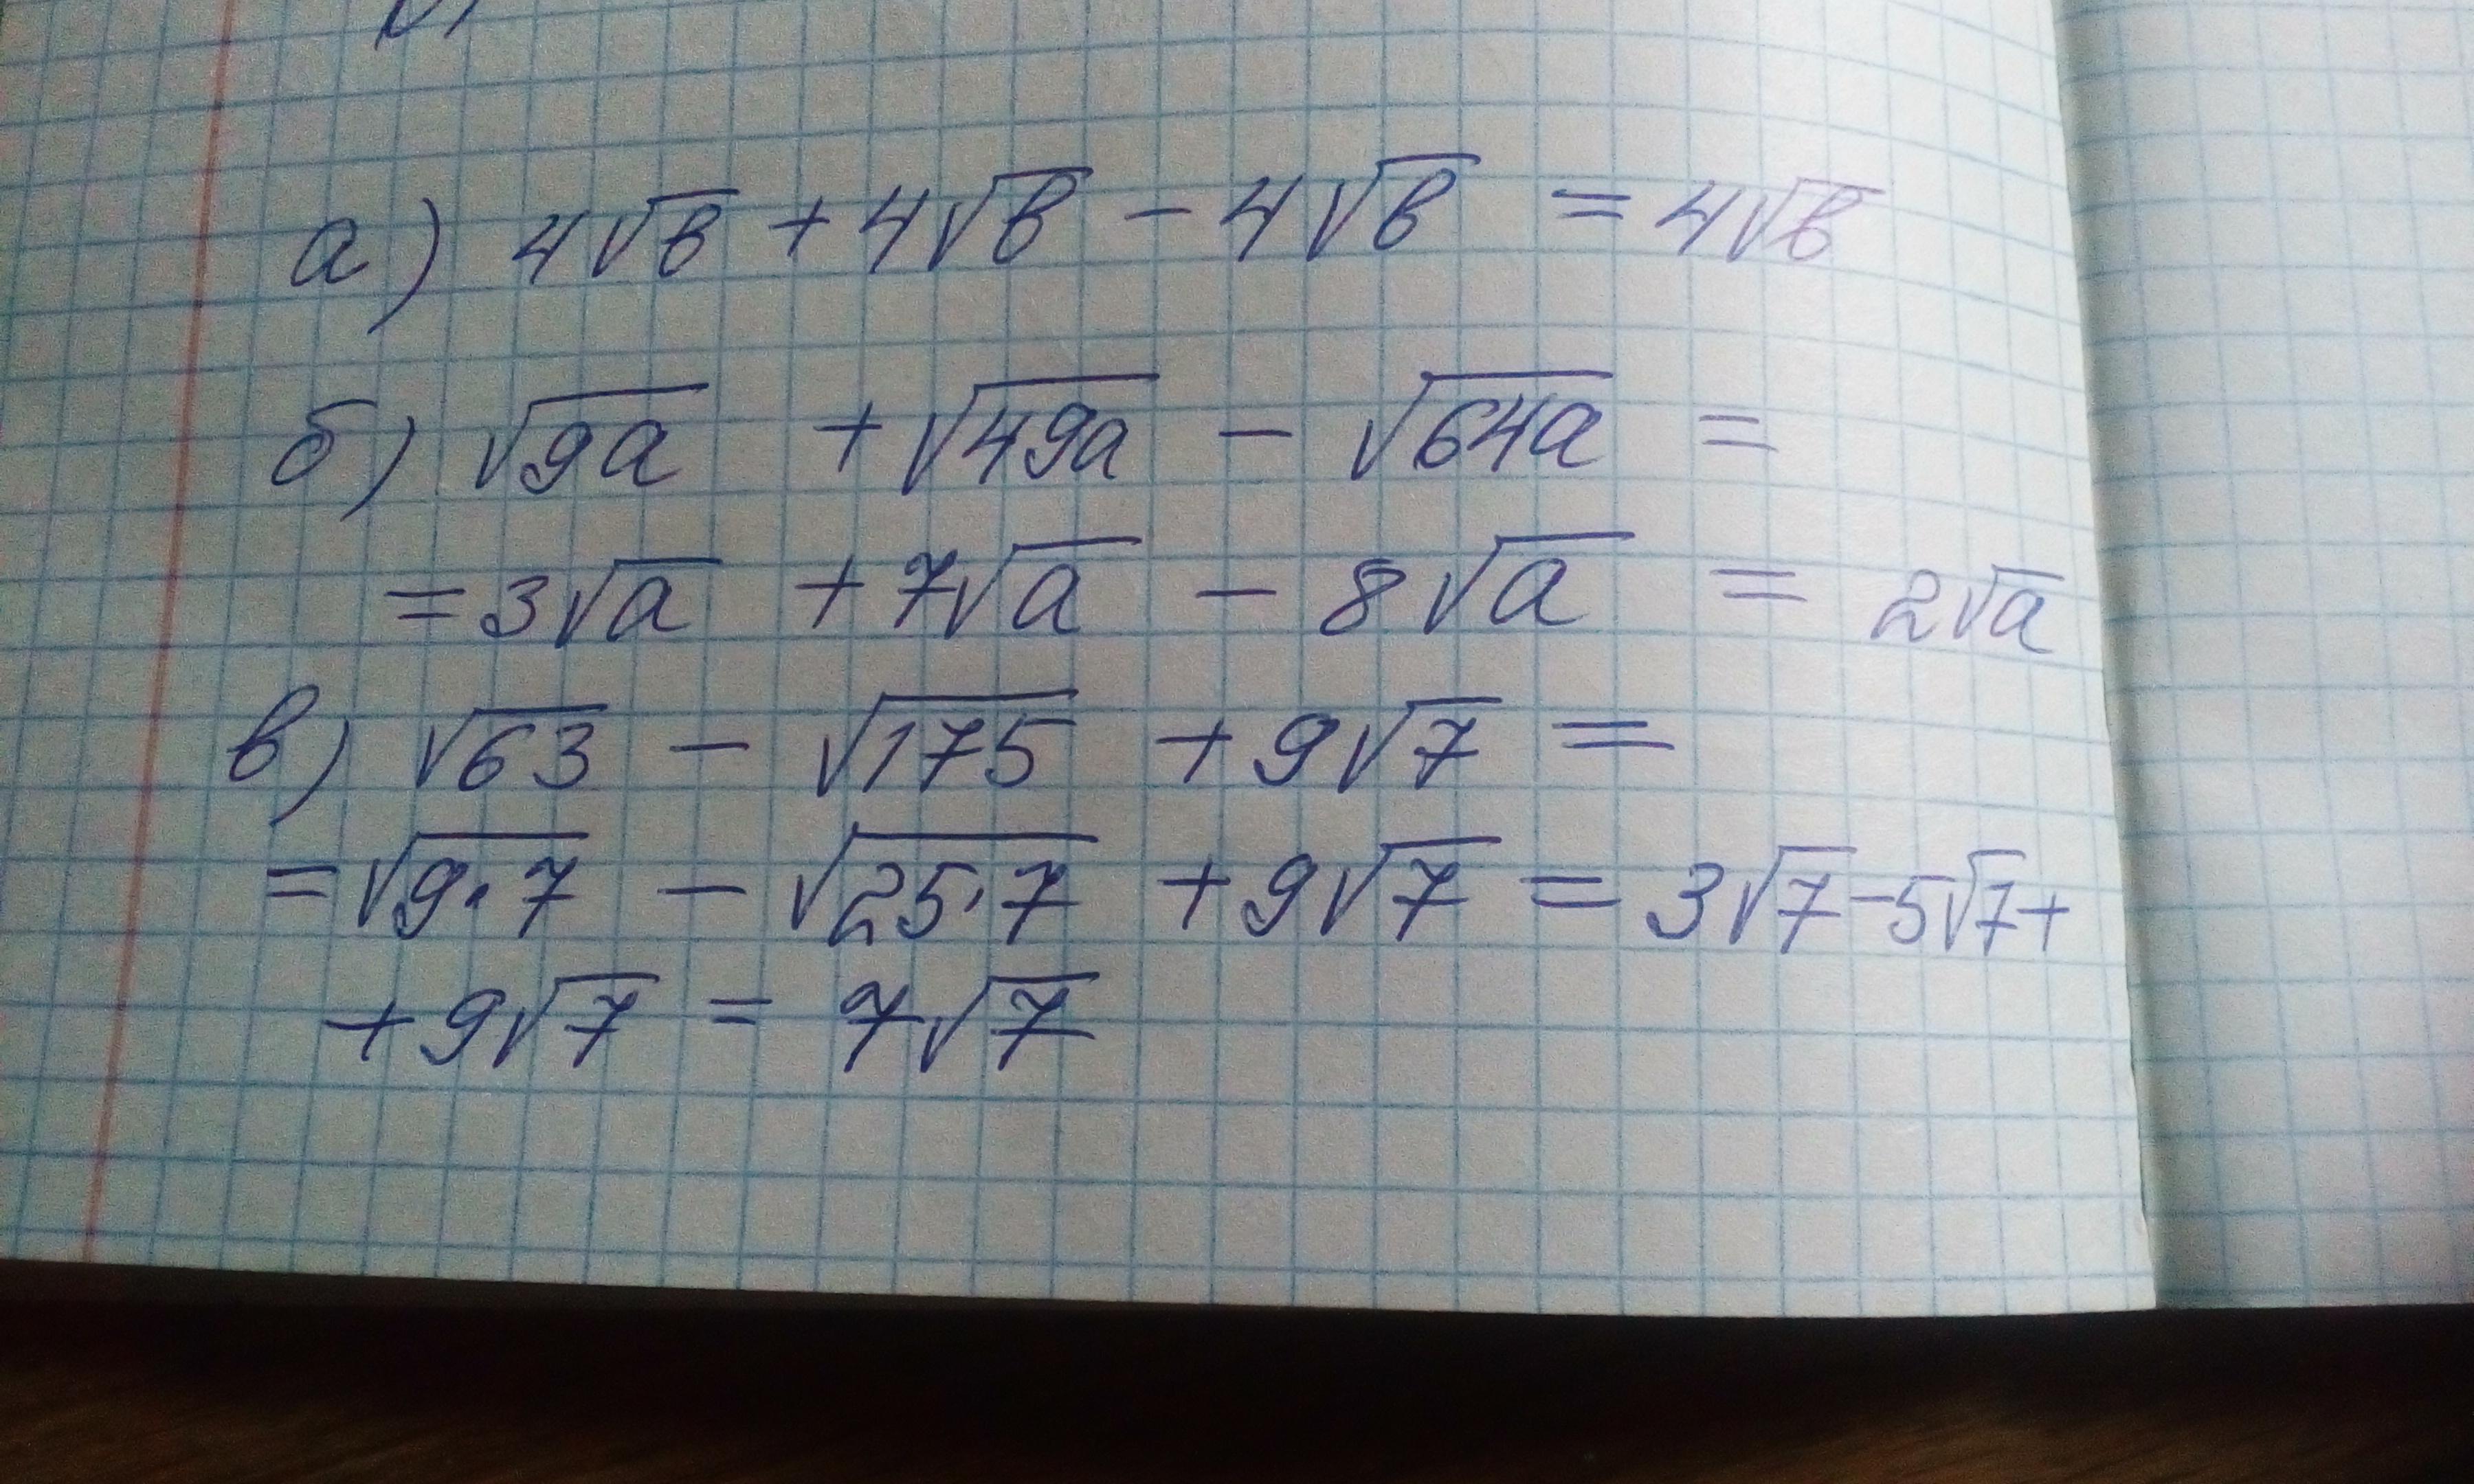 а) 4√в + 4√в - 4√в = 4√в
б) √9а + √49а - √64а =
= 3√а + 7√а - 8√а = 2√а
в) √63 - √175 + 9√7 =
= √9·7 - √25·7 + 9√7 = 3√7 - 5√7 +
+ 9√7 = 7√7